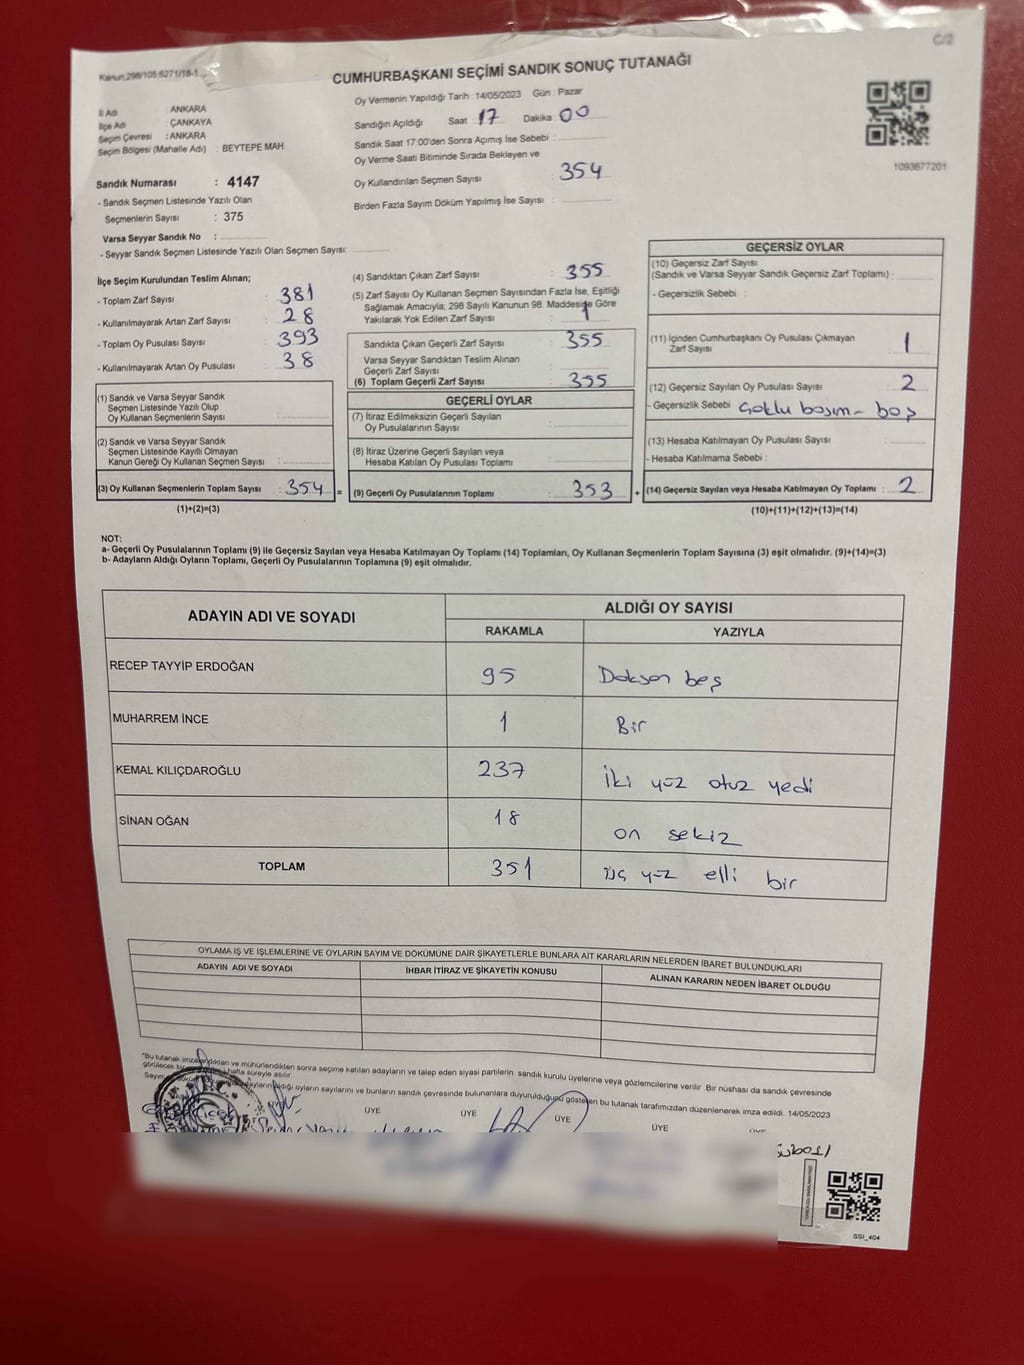 C/2
Kanun 298/105 6271/18-1
CUMHURBAŞKANI SEÇİMİ SANDIK SONUÇ TUTANAĞI
İl Adı ANKARA
İlçe Adı ÇANKAYA
Seçim Çevresi : ANKARA
Seçim Bölgesi (Mahalle Adı) : BEYTEPE MAH.
Sandık Numarası : 4147
- Sandık Seçmen Listesinde Yazılı Olan
Seçmenlerin Sayısı : 375
Varsa Seyyar Sandık No :
- Seyyar Sandık Seçmen Listesinde Yazılı Olan Seçmen Sayısı:
Oy Vermenin Yapıldığı Tarih : 14/05/2023 Gün : Pazar
Sandığın Açıldığı Saat : 17 Dakika : 00
Sandık Saat 17:00'den Sonra Açımış İse Sebebi :
Oy Verme Saati Bitiminde Sırada Bekleyen ve
Oy Kullandırılan Seçmen Sayısı : 354
Birden Fazla Sayım Döküm Yapılmış İse Sayısı :
1093677201
İlçe Seçim Kurulundan Teslim Alınan;
- Toplam Zarf Sayısı : 381
- Kullanılmayarak Artan Zarf Sayısı : 28
- Toplam Oy Pusulası Sayısı : 393
- Kullanılmayarak Artan Oy Pusulası : 38
(1) Sandık ve Varsa Seyyar Sandık
Seçmen Listesinde Yazılı Olup
Oy Kullanan Seçmenlerin Sayısı :
(2) Sandık ve Varsa Seyyar Sandık
Seçmen Listesinde Kayıtlı Olmayan
Kanun Gereği Oy Kullanan Seçmen Sayısı :
(3) Oy Kullanan Seçmenlerin Toplam Sayısı : 354 =
(1)+(2)=(3)
(4) Sandıktan Çıkan Zarf Sayısı : 355
(5) Zarf Sayısı Oy Kullanan Seçmen Sayısından Fazla İse, Eşitliği
Sağlamak Amacıyla; 298 Sayılı Kanunun 98. Maddesine Göre
Yakılarak Yok Edilen Zarf Sayısı : 1
Sandıkta Çıkan Geçerli Zarf Sayısı : 355
Varsa Seyyar Sandıktan Teslim Alınan
Geçerli Zarf Sayısı :
(6) Toplam Geçerli Zarf Sayısı : 355
GEÇERLİ OYLAR
(7) İtiraz Edilmeksizin Geçerli Sayılan
Oy Pusulalarının Sayısı :
(8) İtiraz Üzerine Geçerli Sayılan veya
Hesaba Katılan Oy Pusulası Toplamı :
(9) Geçerli Oy Pusulalarının Toplamı : 353 +
GEÇERSİZ OYLAR
(10) Geçersiz Zarf Sayısı
(Sandık ve Varsa Seyyar Sandık Geçersiz Zarf Toplamı) :
- Geçersizlik Sebebi :
(11) İçinden Cumhurbaşkanı Oy Pusulası Çıkmayan
Zarf Sayısı : 1
(12) Geçersiz Sayılan Oy Pusulası Sayısı : 2
- Geçersizlik Sebebi : Çoklu basım - boş
(13) Hesaba Katılmayan Oy Pusulası Sayısı :
- Hesaba Katılmama Sebebi :
(14) Geçersiz Sayılan veya Hesaba Katılmayan Oy Toplamı : 2
(10)+(11)+(12)+(13)=(14)
NOT:
a- Geçerli Oy Pusulalarının Toplamı (9) ile Geçersiz Sayılan veya Hesaba Katılmayan Oy Toplamı (14) Toplamları, Oy Kullanan Seçmenlerin Toplam Sayısına (3) eşit olmalıdır. (9)+(14)=(3)
b- Adayların Aldığı Oyların Toplamı, Geçerli Oy Pusulalarının Toplamına (9) eşit olmalıdır.
ADAYIN ADI VE SOYADI ALDIĞI OY SAYISI
RAKAMLA YAZIYLA
RECEP TAYYİP ERDOĞAN 95 Doksan beş
MUHARREM İNCE 1 Bir
KEMAL KILIÇDAROĞLU 237 İki yüz otuz yedi
SİNAN OĞAN 18 on sekiz
TOPLAM 351 üç yüz elli bir
OYLAMA İŞ VE İŞLEMLERİNE VE OYLARIN SAYIM VE DÖKÜMÜNE DAİR ŞİKAYETLERLE BUNLARA AİT KARARLARIN NELERDEN İBARET BULUNDUKLARI
ADAYIN ADI VE SOYADI İHBAR İTİRAZ VE ŞİKAYETİN KONUSU ALINAN KARARIN NEDEN İBARET OLDUĞU
*Bu tutanak imzalandıktan ve mühürlendikten sonra seçime katılan adayların ve talep eden siyasi partilerin sandık kurulu üyelerine veya gözlemcilerine verilir. Bir nüshası da sandık çevresinde
hafta süreyle asılır.
aldığı oyların sayılarını ve bunların sandık çevresinde bulunanlara duyurulduğunu gösteren bu tutanak tarafımızdan düzenlenerek imza edildi. 14/05/2023
ÜYE ÜYE ÜYE ÜYE
SSI_404